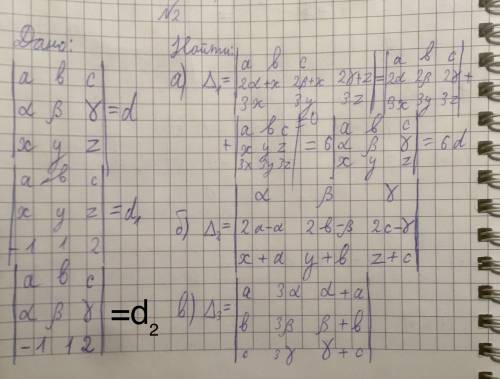 N2
Дано:
|a в c|
|α β γ| = d
|x y z|
|a в c|
|x y z| = d₁
|-1 1 2|
|a в c|
|α β γ| = d₂
|-1 1 2|
Найти:
а) Δ₁ = |a в c; 2α+x 2β+x 2γ+z; 3x 3y 3z| = |a в c; 2α 2β 2γ; 3x 3y 3z| +
+ |a в c; x y z; 3x 3y 3z| = 6 |a в c; α β γ; x y z| = 6d
б) Δ₂ = |α β γ; 2a-α 2в-β 2c-γ; x+d y+в z+c|
в) Δ₃ = |a 3α α+a; в 3β β+в; c 3γ γ+c|